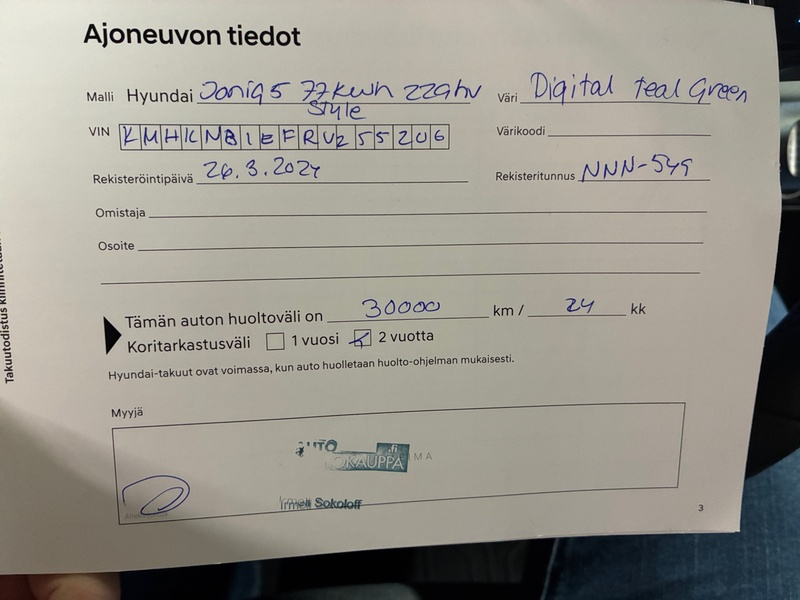 Ajoneuvon tiedot
Malli Hyundai Ioniq 5 77 kwh 229hv Väri Digital teal Green
Style
VIN KMHKMB1EFRU255206 Värikoodi
Rekisteröintipäivä 26.3.2024 Rekisteritunnus NNN-549
Omistaja
Osoite
Tämän auton huoltoväli on 30000 km / 24 kk
Koritarkastusväli 1 vuosi 2 vuotta
Hyundai-takuut ovat voimassa, kun auto huolletaan huolto-ohjelman mukaisesti.
Myyjä
AUTO .fi
OKAUPPA
Irmeli Sokoloff
3